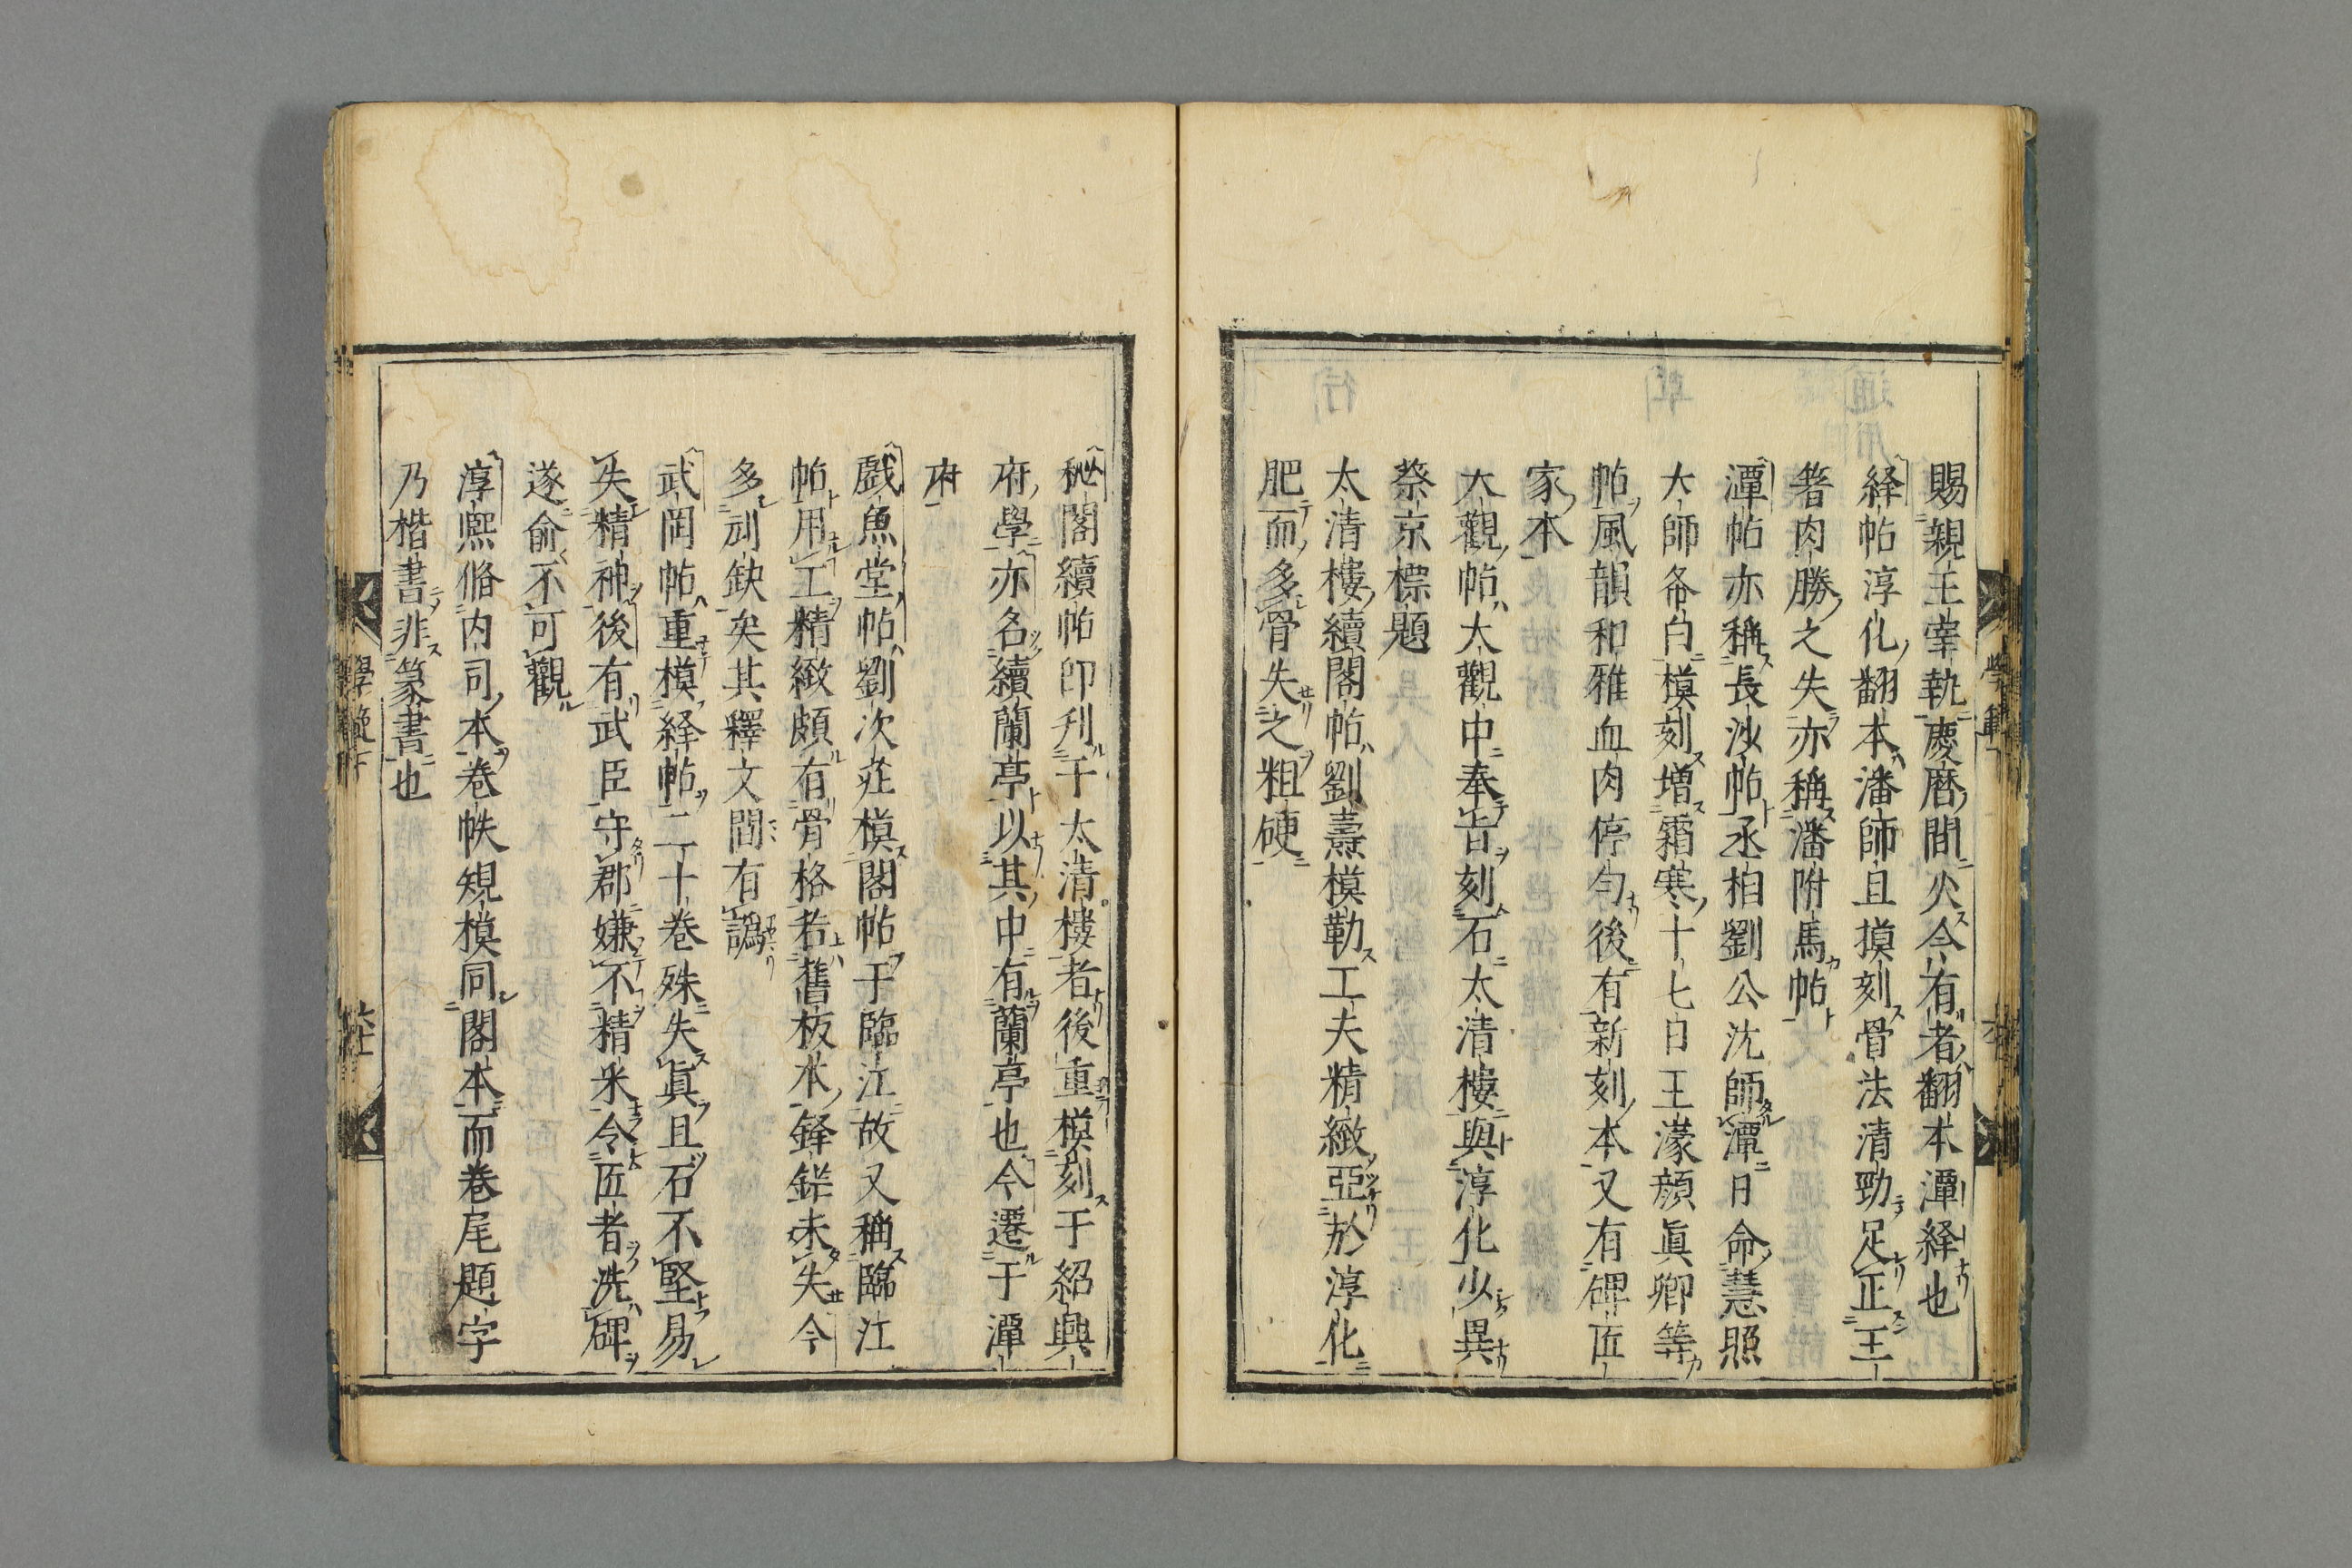 賜親王宰執慶曆間火今有者翻本潭絳也
絳帖淳化翻本潘師旦摸刻骨法清勁足正王
著肉勝之失亦稱潘附馬帖
潭帖亦稱長沙帖丞相劉公沈師潭日命慧照
大師希白模刻増霜寒十七日王濛顔眞卿等
帖風韻和雅血肉停匀後有新刻本又有碑匠
家本
大觀帖大觀中奉旨刻石太清樓與淳化少異
蔡京標題
太清樓續閣帖劉燾模勒工夫精緻亞於淳化
肥而多骨失之粗硬
秘閣續帖即刋于太清樓者後重模刻于紹興
府學亦名續蘭亭以其中有蘭亭也今遷于潭
府
戲魚堂帖劉次莊模閣帖于臨江故又稱臨江
帖用工精緻頗有骨格若舊板本鋒鋩未失今
多刓缺矣其釋文間有譌
武岡帖重模絳帖二十卷殊失眞且石不堅易
失精神後有武臣守郡嫌不精米令匠者洗碑
遂俞不可觀
淳熈脩内司本卷帙規模同閣本而卷尾題字
乃楷書非篆書也
學範下